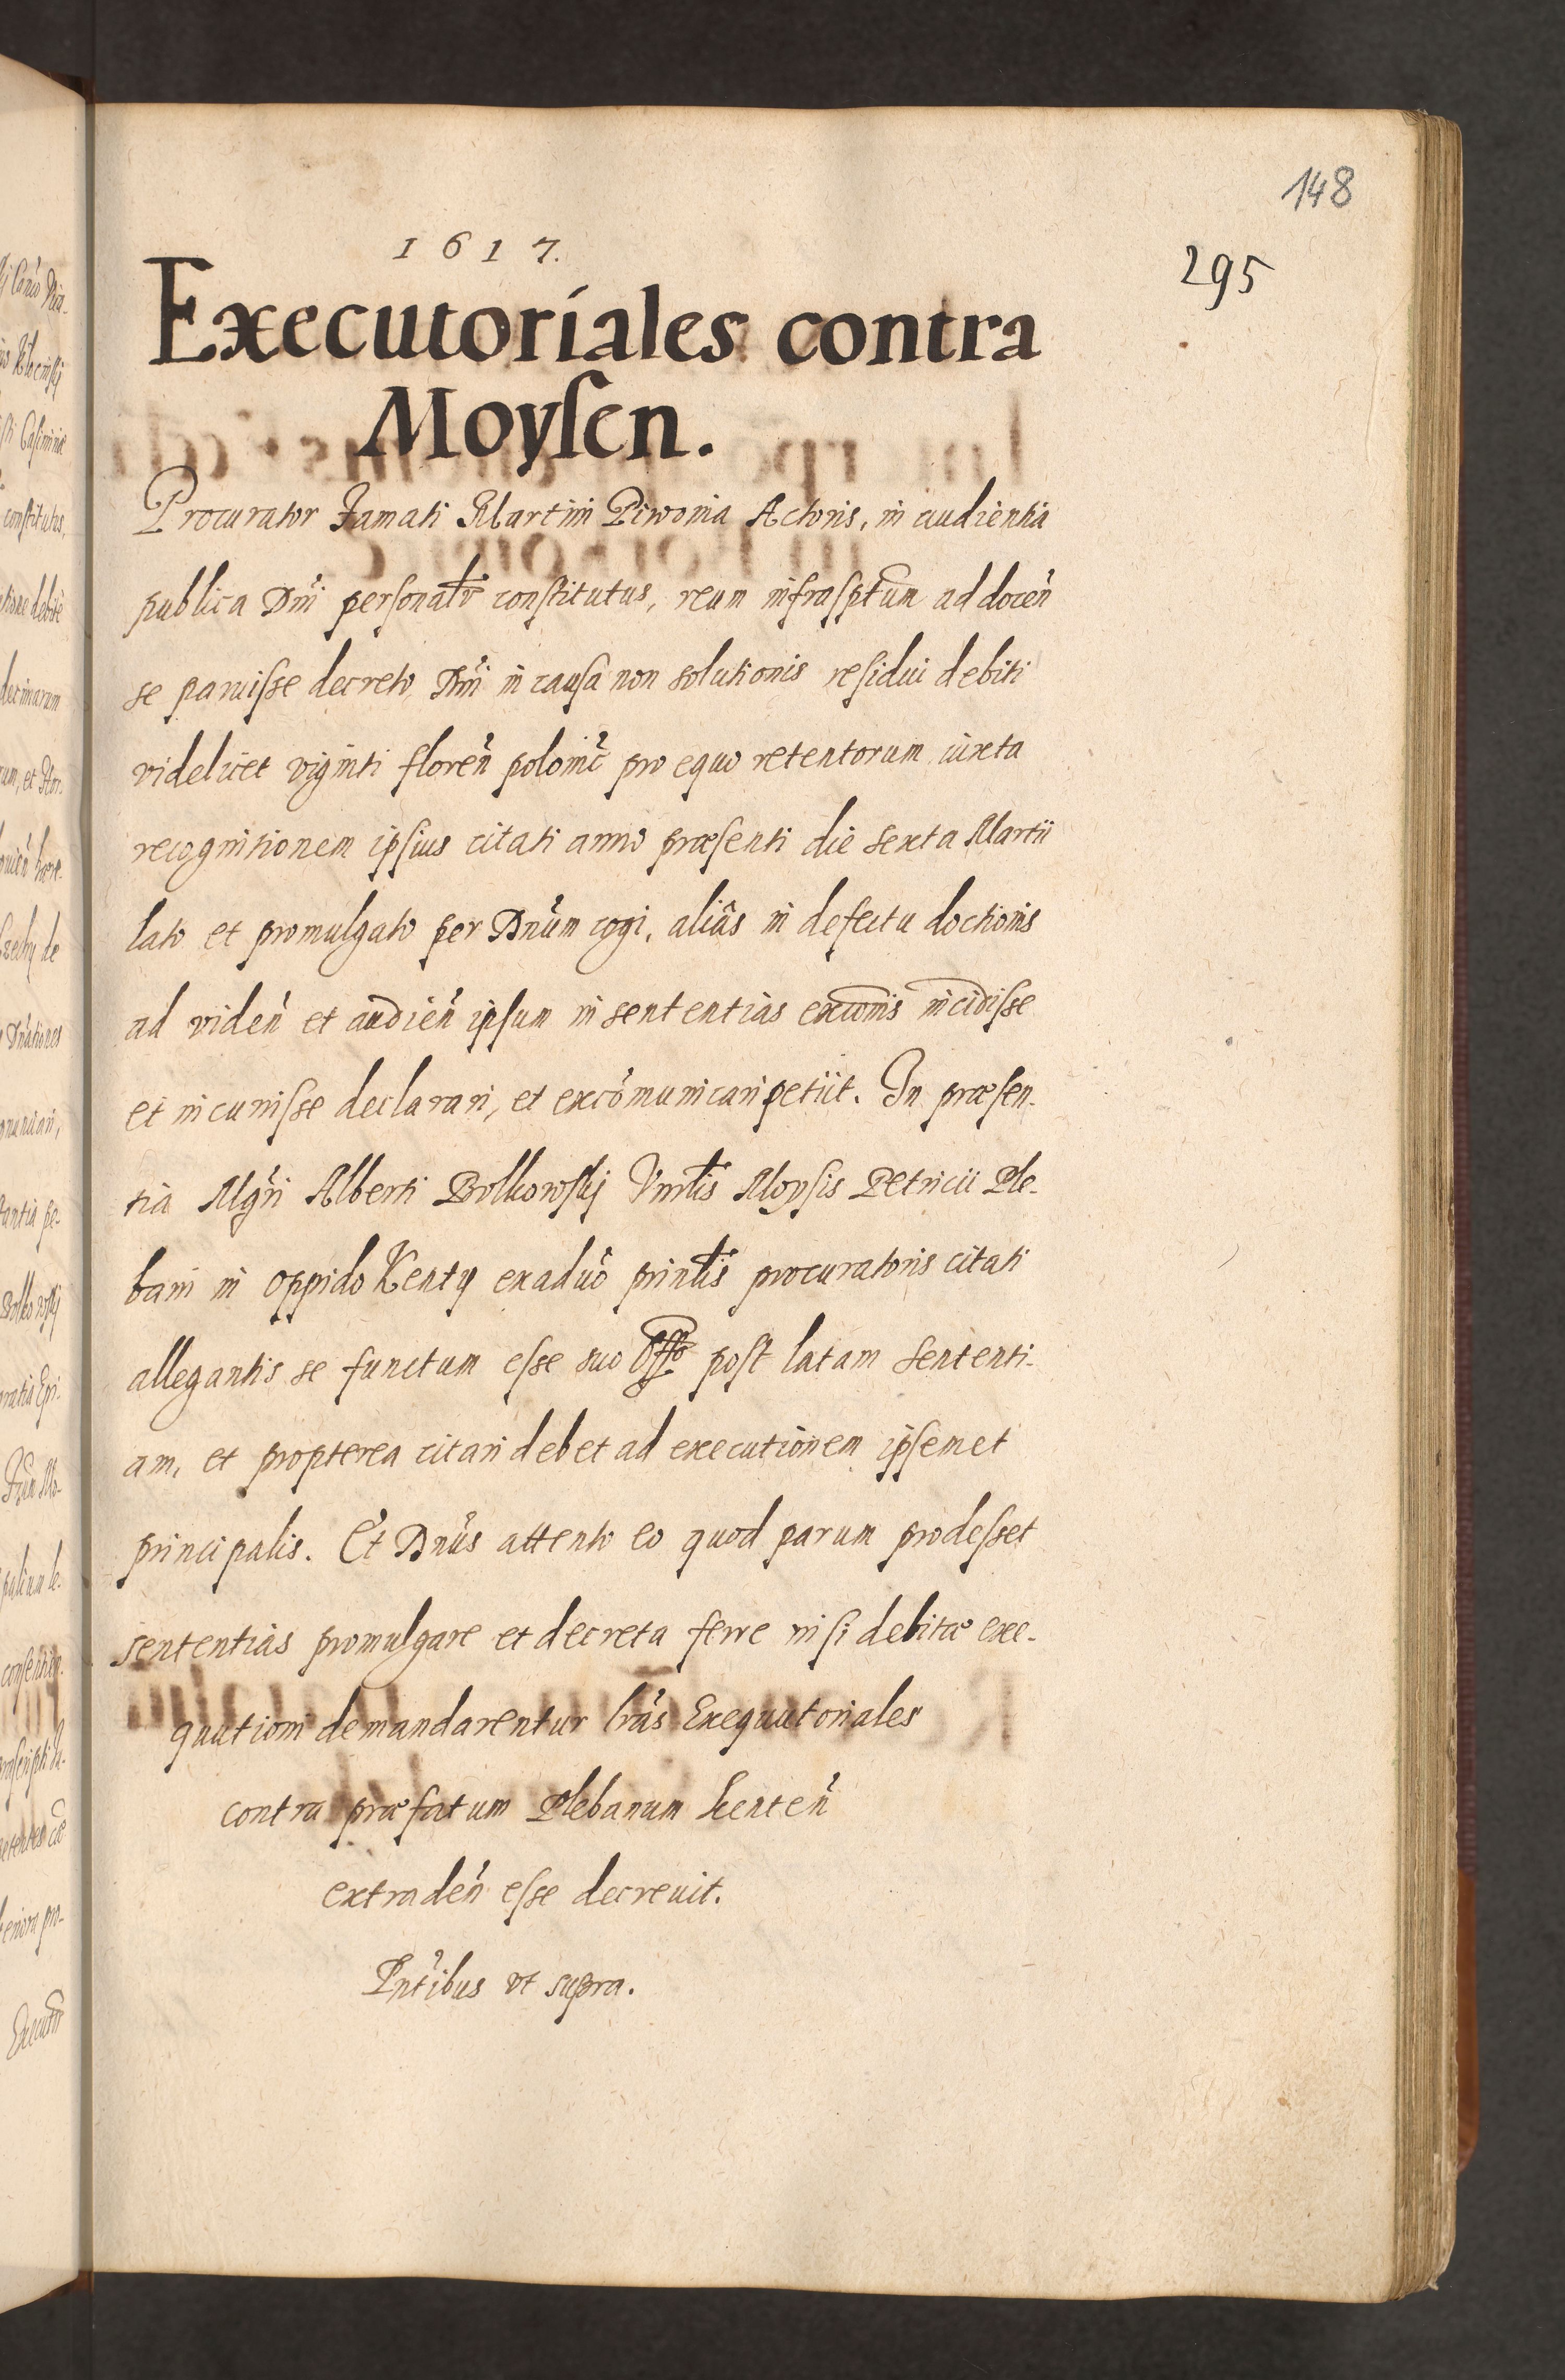 148
295
1617.
Executoriales contra
Moysen.
Procurator Famati Martini Piwonia Actoris, in audientia
publica Dni personalr constitutus, reum infrasptum ad docen
se paruisse decreto Dni in causa non solutionis residui debiti
videlicet viginti floren polonic pro equo retentorum iuxta
recognitionem ipsius citati anno præsenti die sexta Martii
lato et promulgato per Dnum cogi, aliâs in defectu doctionis
ad viden et audien ipsum in sententias excomnis incidisse
et incurrisse declarari, et excomunicari petiit. In præsen-
tia Mgri Alberti Bolkowskj Vnrlis Moysis Petricii Ple-
bani in oppido Kenty exaduo prinlis procuratoris citati
allegantis se functum esse suo Offo post latam sententi-
am, et propterea citari debet ad executionem ipsemet
principalis. Et Dnus attento eo quod parum prodesset
sententias promulgare et decreta ferre nisi debitæ exe-
quutioni demandarentur lras Exequutoriales
contra præfatum Plebanum Kenten
extraden esse decreuit.
Pntibus vt supra.